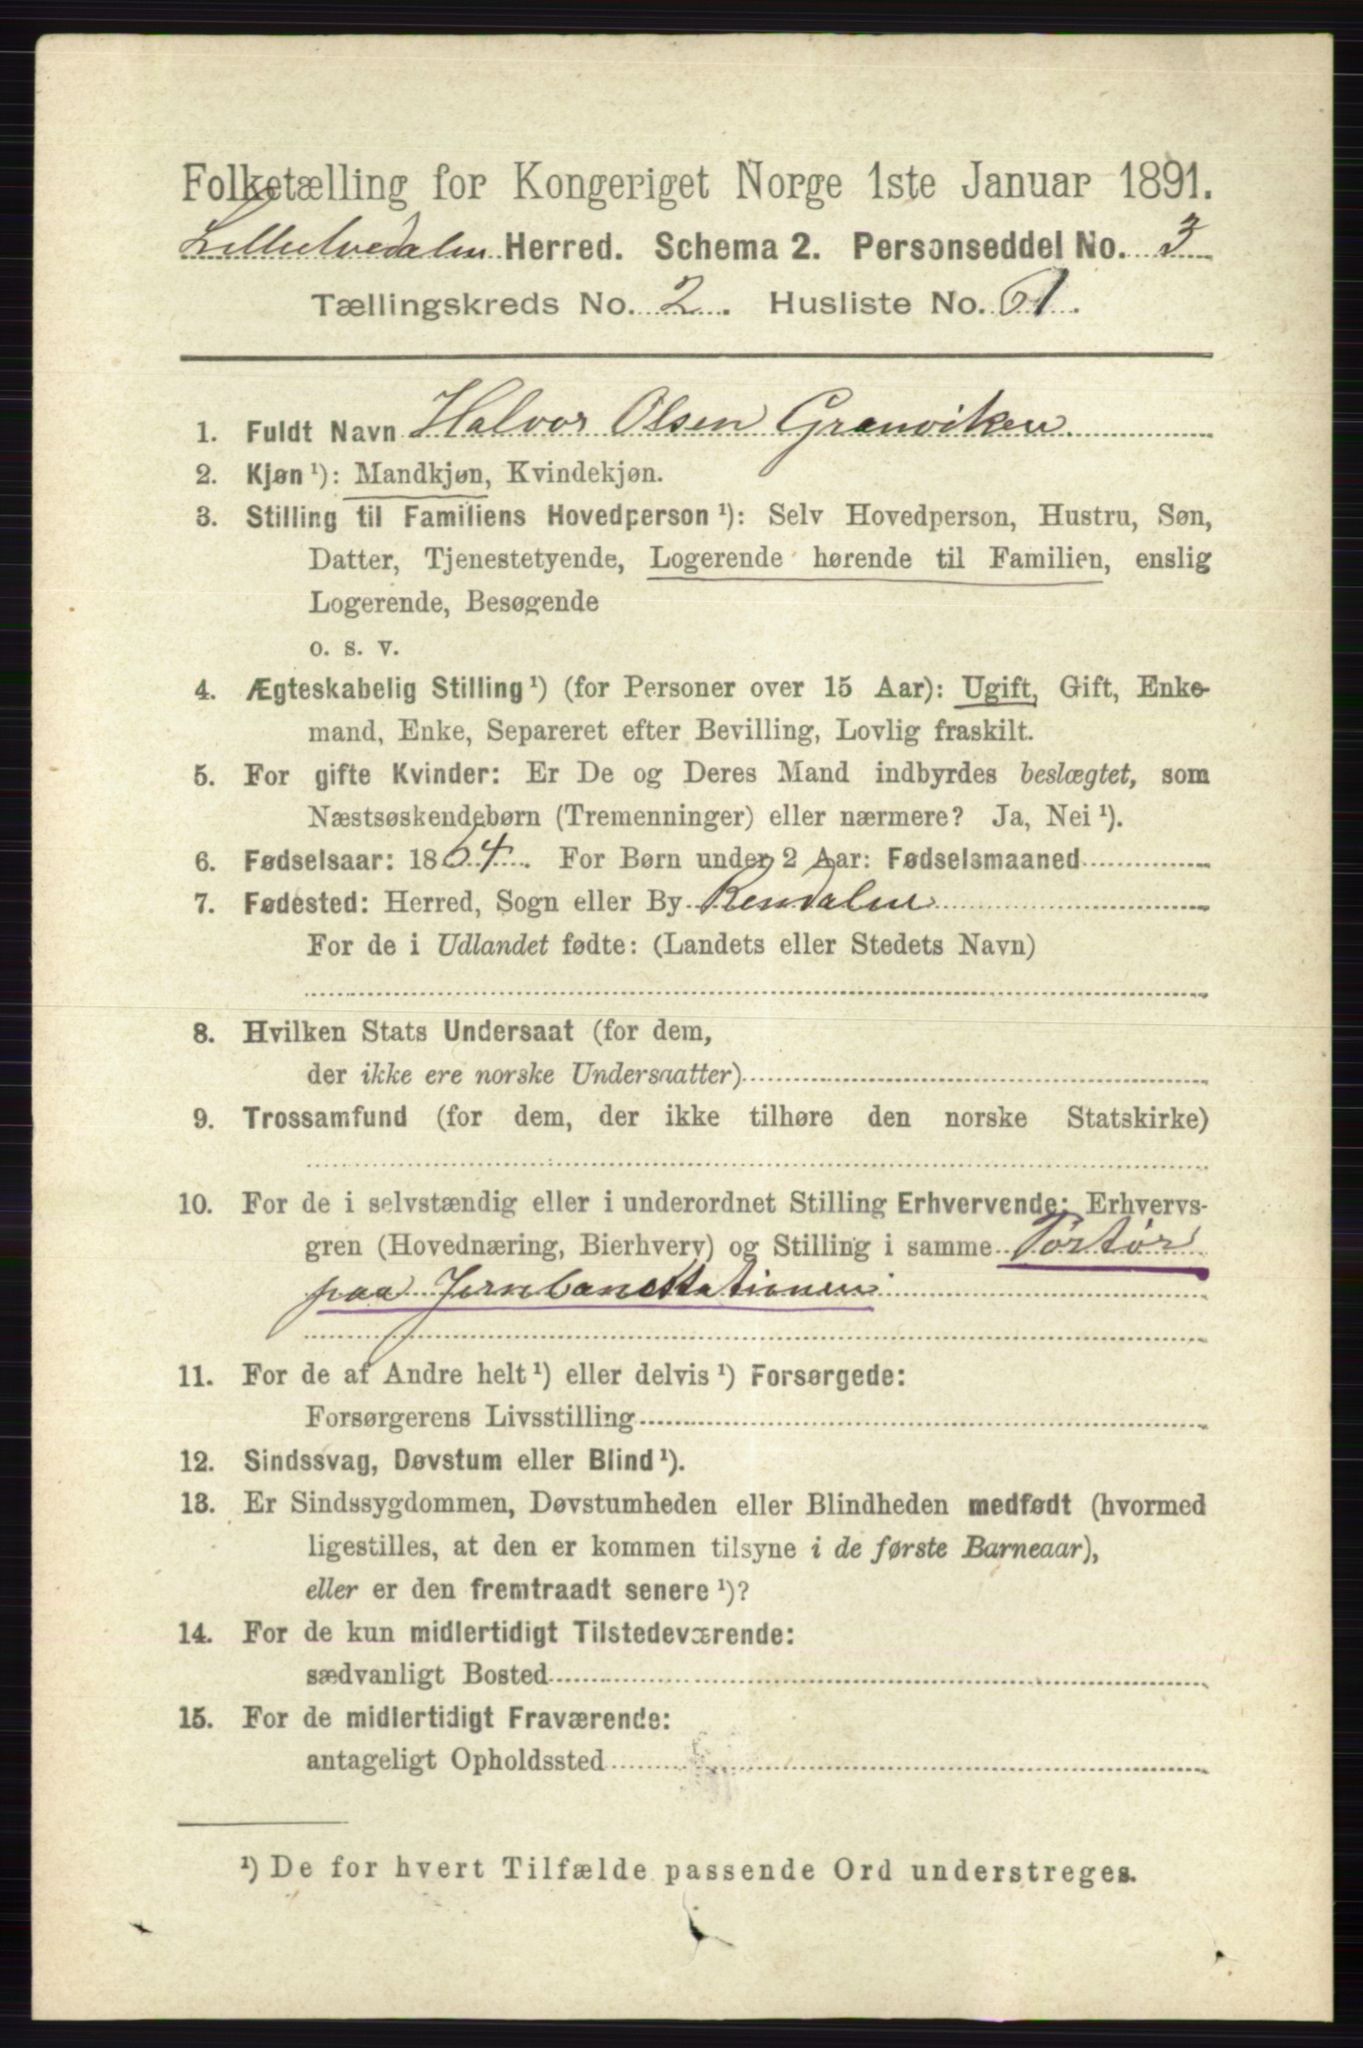 Folketælling for Kongeriget Norge 1ste Januar 1891.
Lilleelvedalen Herred. Schema 2. Personseddel No. 3
Tællingskreds No. 2. Husliste No. 61.
1. Fuldt Navn Halvor Olsen Granviken
2. Kjøn¹): Mandkjøn, Kvindekjøn.
3. Stilling til Familiens Hovedperson¹): Selv Hovedperson, Hustru, Søn,
Datter, Tjenestetyende, Logerende hørende til Familien, enslig
Logerende, Besøgende
o. s. v.
4. Ægteskabelig Stilling¹) (for Personer over 15 Aar): Ugift, Gift, Enke-
mand, Enke, Separeret efter Bevilling, Lovlig fraskilt.
5. For gifte Kvinder: Er De og Deres Mand indbyrdes beslægtet, som
Næstsøskendebørn (Tremenninger) eller nærmere? Ja, Nei¹).
6. Fødselsaar: 1864. For Børn under 2 Aar: Fødselsmaaned
7. Fødested: Herred, Sogn eller By Rendalen
For de i Udlandet fødte: (Landets eller Stedets Navn)
8. Hvilken Stats Undersaat (for dem,
der ikke ere norske Undersaatter)
9. Trossamfund (for dem, der ikke tilhøre den norske Statskirke)
10. For de i selvstændig eller i underordnet Stilling Erhvervende: Erhvervs-
gren (Hovednæring, Bierhverv) og Stilling i samme Portør
paa Jernbanestationen
11. For de af Andre helt¹) eller delvis¹) Forsørgede:
Forsørgerens Livsstilling
12. Sindssvag, Døvstum eller Blind¹).
13. Er Sindssygdommen, Døvstumheden eller Blindheden medfødt (hvormed
ligestilles, at den er kommen tilsyne i de første Barneaar),
eller er den fremtraadt senere¹)?
14. For de kun midlertidigt Tilstedeværende:
sædvanligt Bosted
15. For de midlertidigt Fraværende:
antageligt Opholdssted
¹) De for hvert Tilfælde passende Ord understreges.